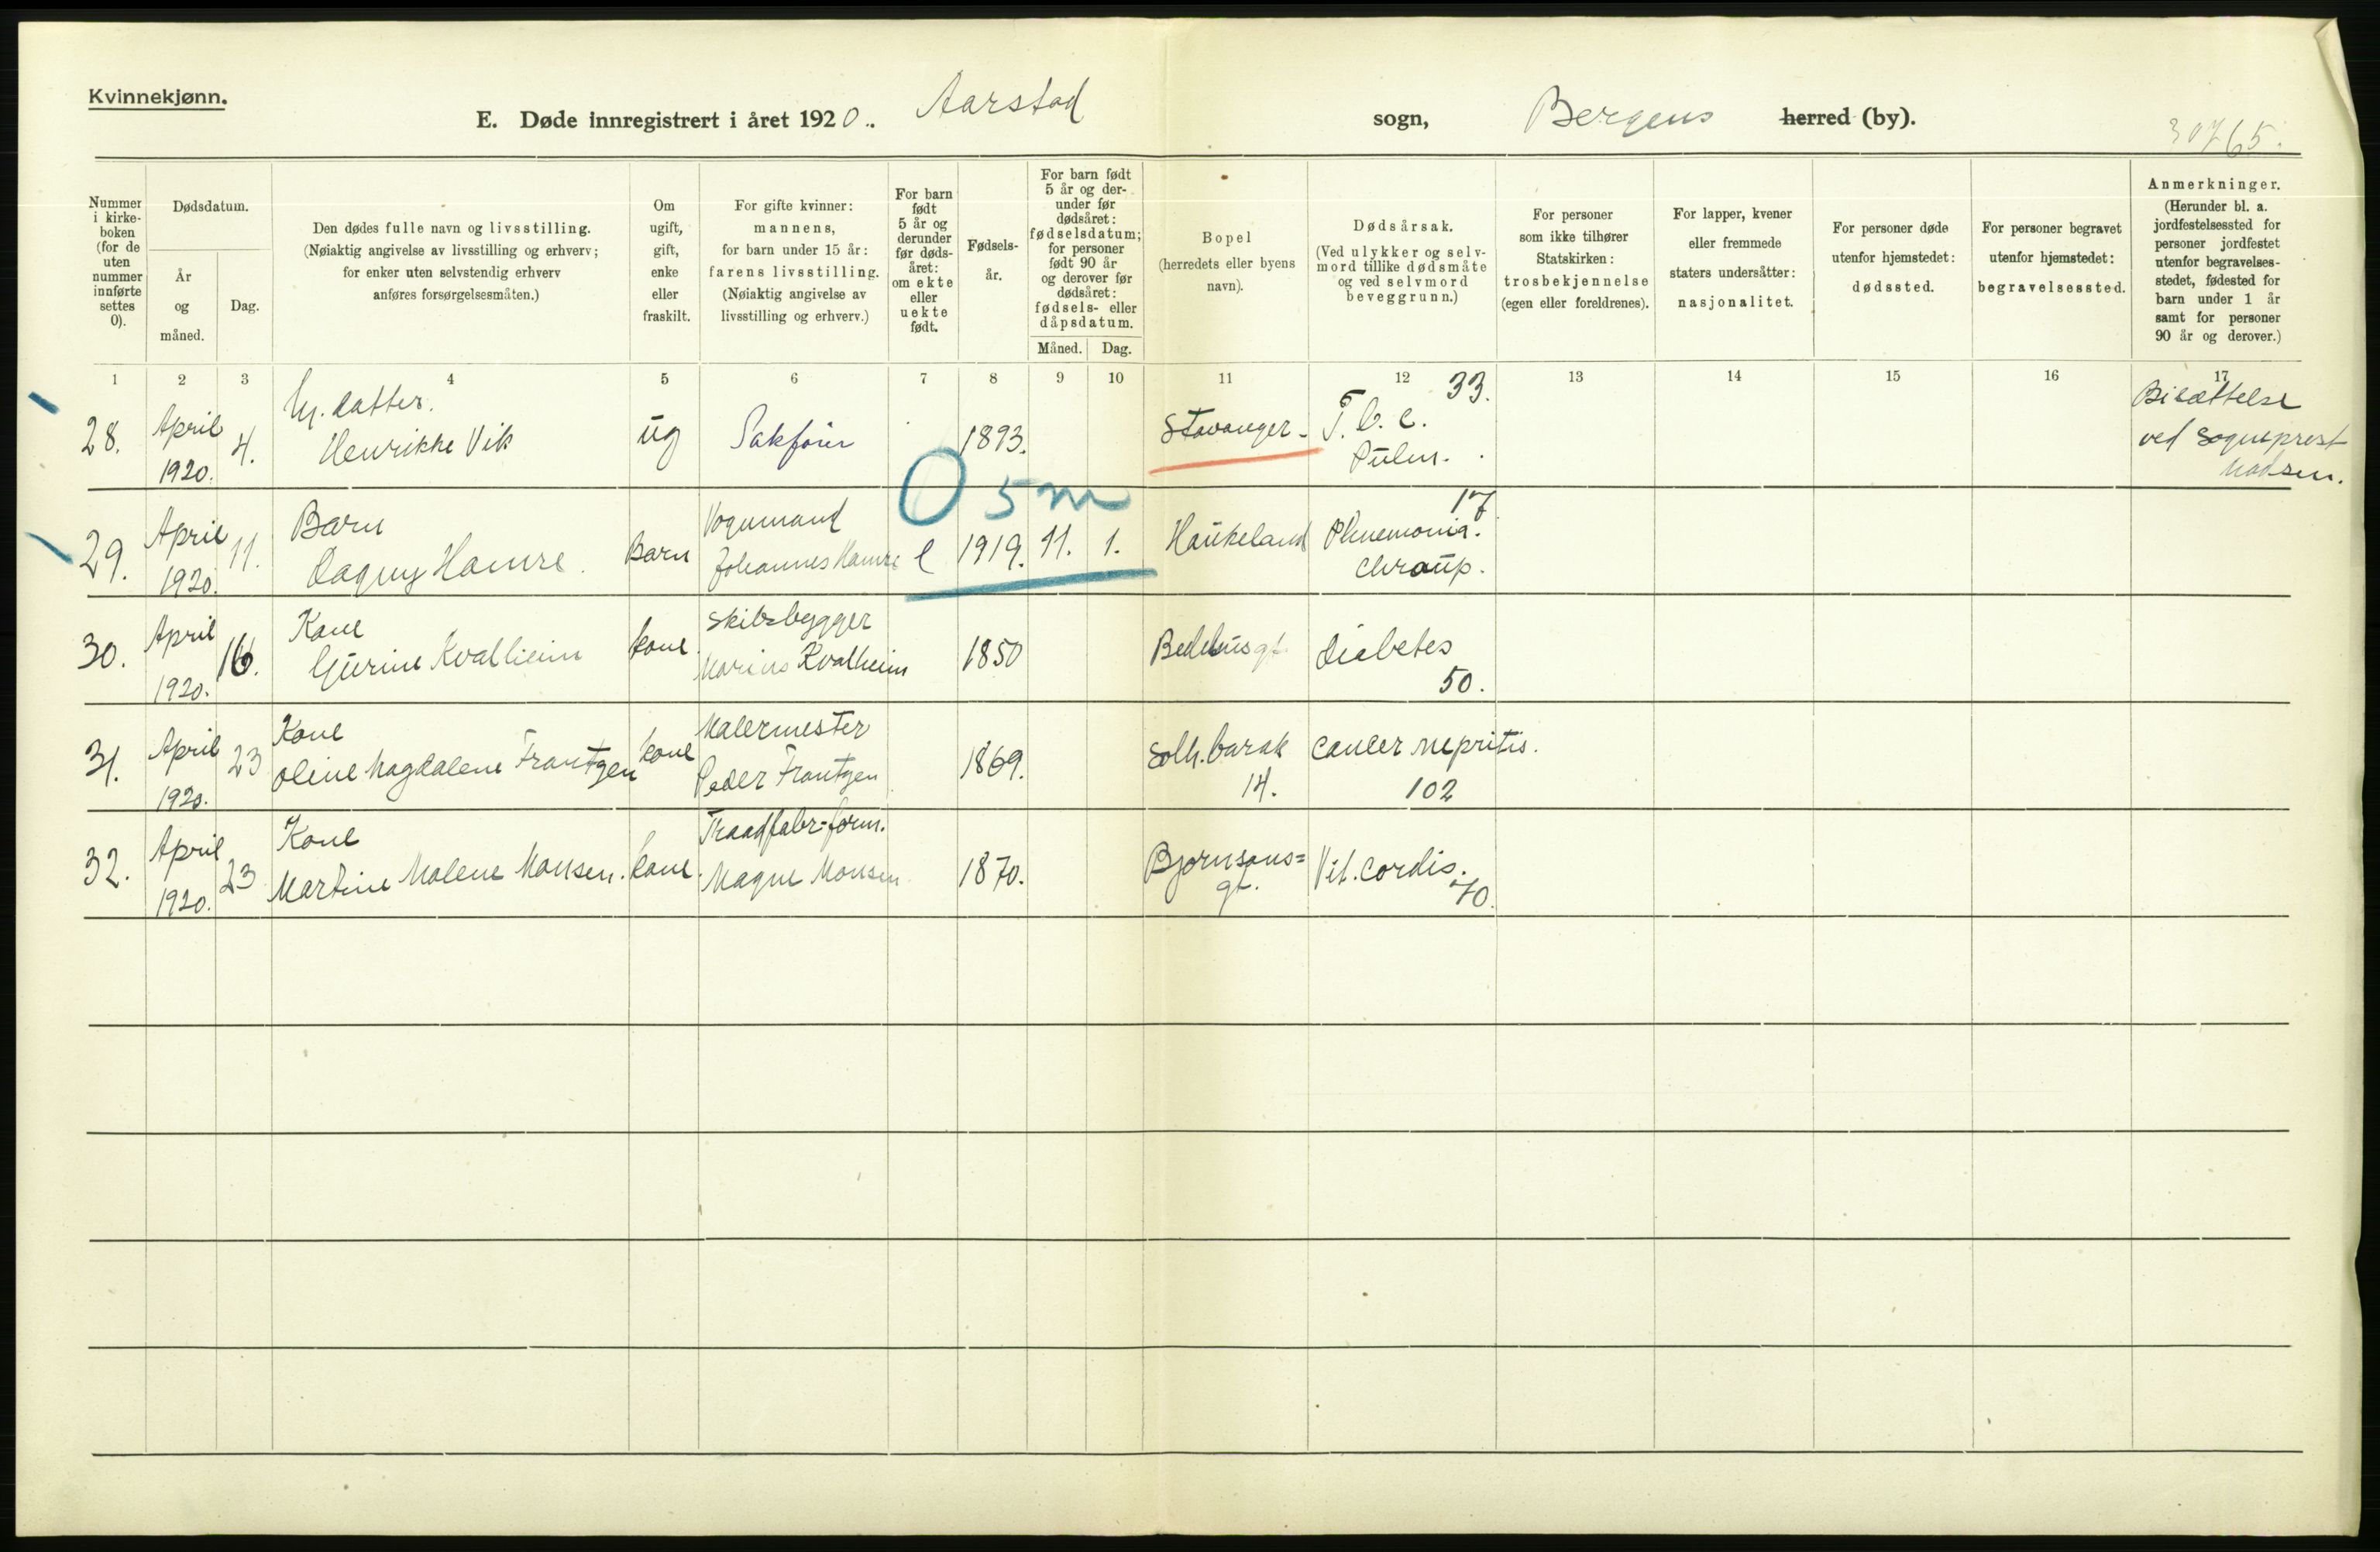 Kvinnekjønn.
E. Døde innregistrert i året 1920. Aarstad sogn, Bergens herred (by).
30765.
Nummer i kirke-boken (for de uten nummer innførte settes 0).
Dødsdatum.
År og måned.
Dag.
Den dødes fulle navn og livsstilling.
(Nøiaktig angivelse av livsstilling og erhverv;
for enker uten selvstendig erhverv
anføres forsørgelsesmåten.)
Om ugift, gift, enke eller fraskilt.
For gifte kvinner:
mannens,
for barn under 15 år:
farens livsstilling.
(Nøiaktig angivelse av
livsstilling og erhverv.)
For barn født 5 år og derunder før døds-året: om ekte eller uekte født.
Fødsels-år.
For barn født 5 år og der-under før dødsåret: fødselsdatum; for personer født 90 år og derover før dødsåret: fødsels- eller dåpsdatum.
Måned. Dag.
Bopel
(herredets eller byens
navn).
Dødsårsak.
(Ved ulykker og selv-
mord tillike dødsmåte
og ved selvmord
beveggrunn.)
For personer
som ikke tilhører
Statskirken:
trosbekjennelse
(egen eller foreldrenes).
For lapper, kvener
eller fremmede
staters undersåtter:
nasjonalitet.
For personer døde
utenfor hjemstedet:
dødssted.
For personer begravet
utenfor hjemstedet:
begravelsessted.
Anmerkninger.
(Herunder bl. a.
jordfestelsessted for
personer jordfestet
utenfor begravelses-
stedet, fødested for
barn under 1 år
samt for personer
90 år og derover.)
1 2 3 4 5 6 7 8 9 10 11 12 13 14 15 16 17
28. April 1920. 4. datter. Henrikke Vik ug Sakfører 1893. Stavanger. T. b. c. Pulm. 33. Bisættelse ved Sogneprest Madsen.
O 5 m
29. April 1920. 11. Barn Dagny Hamre. Barn Vognmand Johannes Hamre e 1919. 11. 1. Haukeland Phnemonia. chroup. 17
30. April 1920. 16. Kone Gurine Kvalheim kone Skibsbygger Marius Kvalheim 1850 Bedehusgt. Diabetes 50.
31. April 1920. 23 Kone Oline Magdalene Frantzen kone Malermester Peder Frantzen 1869. Solh. barak 14. Cancer nepritis. 102
32. April 1920. 23 Kone Martine Malene Monsen. kone. Traadfabr-form. Magne Monsen 1870. Bjørnsons=gt. Vit. cordis. 70.